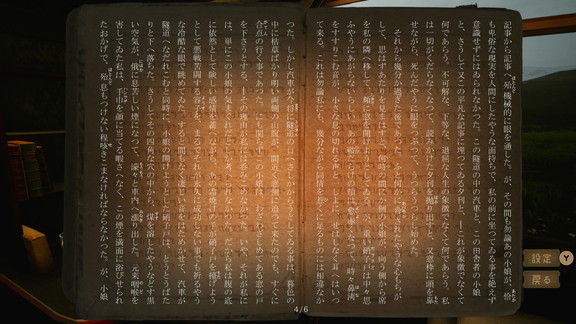 記事から記事へ殆機械的に眼を通した。が、その間も勿論あの小娘が、恰
も卑俗な現実を人間にしたやうな面持ちで、私の前に坐つてゐる事を絶えず
意識せずにはゐられなかつた。この隧道の中の汽車と、この田舎者の小娘
と、さうして又この平凡な記事に埋つてゐる夕刊と、――これが象徴でなくて
何であらう。不可解な、下等な、退屈な人生の象徴でなくて何であらう。私
は一切がくだらなくなつて、読みかけた夕刊を抛り出すと、又窓枠に頭を靠
せながら、死んだやうに眼をつぶつて、うつらうつらし始めた。
それから幾分か過ぎた後であつた。ふと何かに脅されたやうな心もちが
して、思はずあたりを見まはすと、何時の間にか例の小娘が、向う側から席
を私の隣へ移して、頻に窓を開けようとしてゐる。が、重い硝子戸は中々思
ふやうにあがらないらしい。あの皸だらけの頬は愈赤くなつて、時々鼻洟
をすすりこむ音が、小さな息の切れる声と一しよに、せはしなく耳へはいつ
て来る。これは勿論私にも、幾分ながら同情を惹くに足るものには相違なか
つた。しかし汽車が今将に隧道の口へさしかからうとしてゐる事は、暮色の
中に枯草ばかり明い両側の山腹が、間近く窓側に迫つて来たのでも、すぐに
合点の行く事であつた。にも関らずこの小娘は、わざわざしめてある窓の戸
を下さうとする、――その理由が私には呑みこめなかつた。いや、それが私に
は、単にこの小娘の気まぐれだとしか考へられなかつた。だから私は腹の底
に依然として険しい感情を蓄へながら、あの霜焼けの手が硝子戸を擡げよう
として悪戦苦闘する容子を、まるでそれが永久に成功しない事でも祈るやう
な冷酷な眼で眺めてゐた。すると間もなく凄じい音をはためかせて、汽車が
隧道へなだれこむと同時に、小娘の開けようとした硝子戸は、とうとうばた
りと下へ落ちた。さうしてその四角な穴の中から、煤を溶したやうなどす黒
い空気が、俄に息苦しい煙になつて、濛々と車内へ漲り出した。元来咽喉を
害してゐた私は、手巾を顔に当てる暇さへなく、この煙を満面に浴びせられ
たおかげで、殆息もつけない程咳きこまなければならなかつた。が、小娘
4/6
設定 Y
戻る